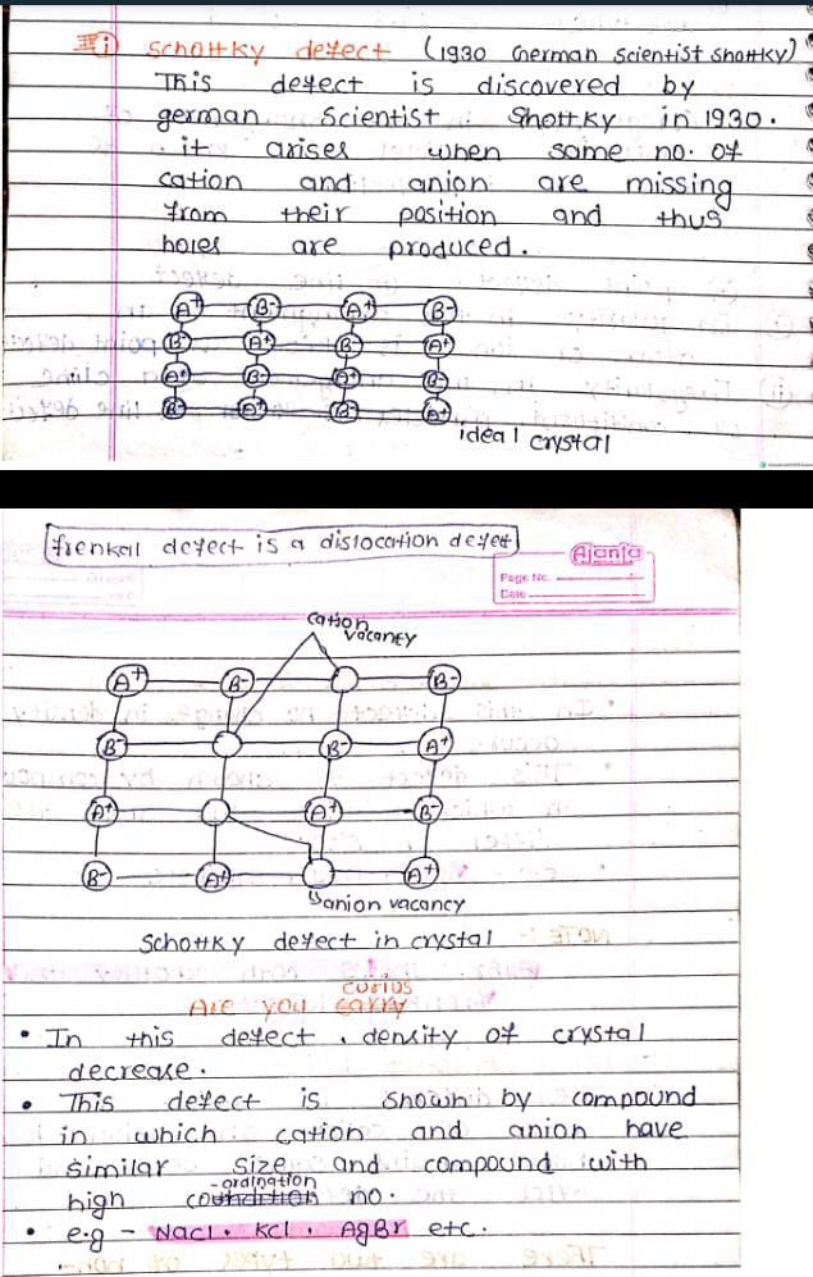 i) Schottky defect (1930 German scientist Shottky)
This defect is discovered by
german Scientist Shottky in 1930.
it arises when same no. of
cation and anion are missing
from their position and thus
holes are produced.
A+ B- A+ B-
B- A+ B- A+
A+ B- A+ B-
B- A+ B- A+
ideal crystal
frenkal defect is a dislocation defect
Ajanta
Page No.
Date
cation
vacancy
A+ B- B-
B- B- A+
A+ A+ B-
B- A+ A+
anion vacancy
Schottky defect in crystal
curius
Are you
• In this defect, density of crystal
decrease.
• This defect is shown by compound
in which cation and anion have
similar size and compound with
-ordination
high co no.
• e.g - Nacl. Kcl. AgBr etc.